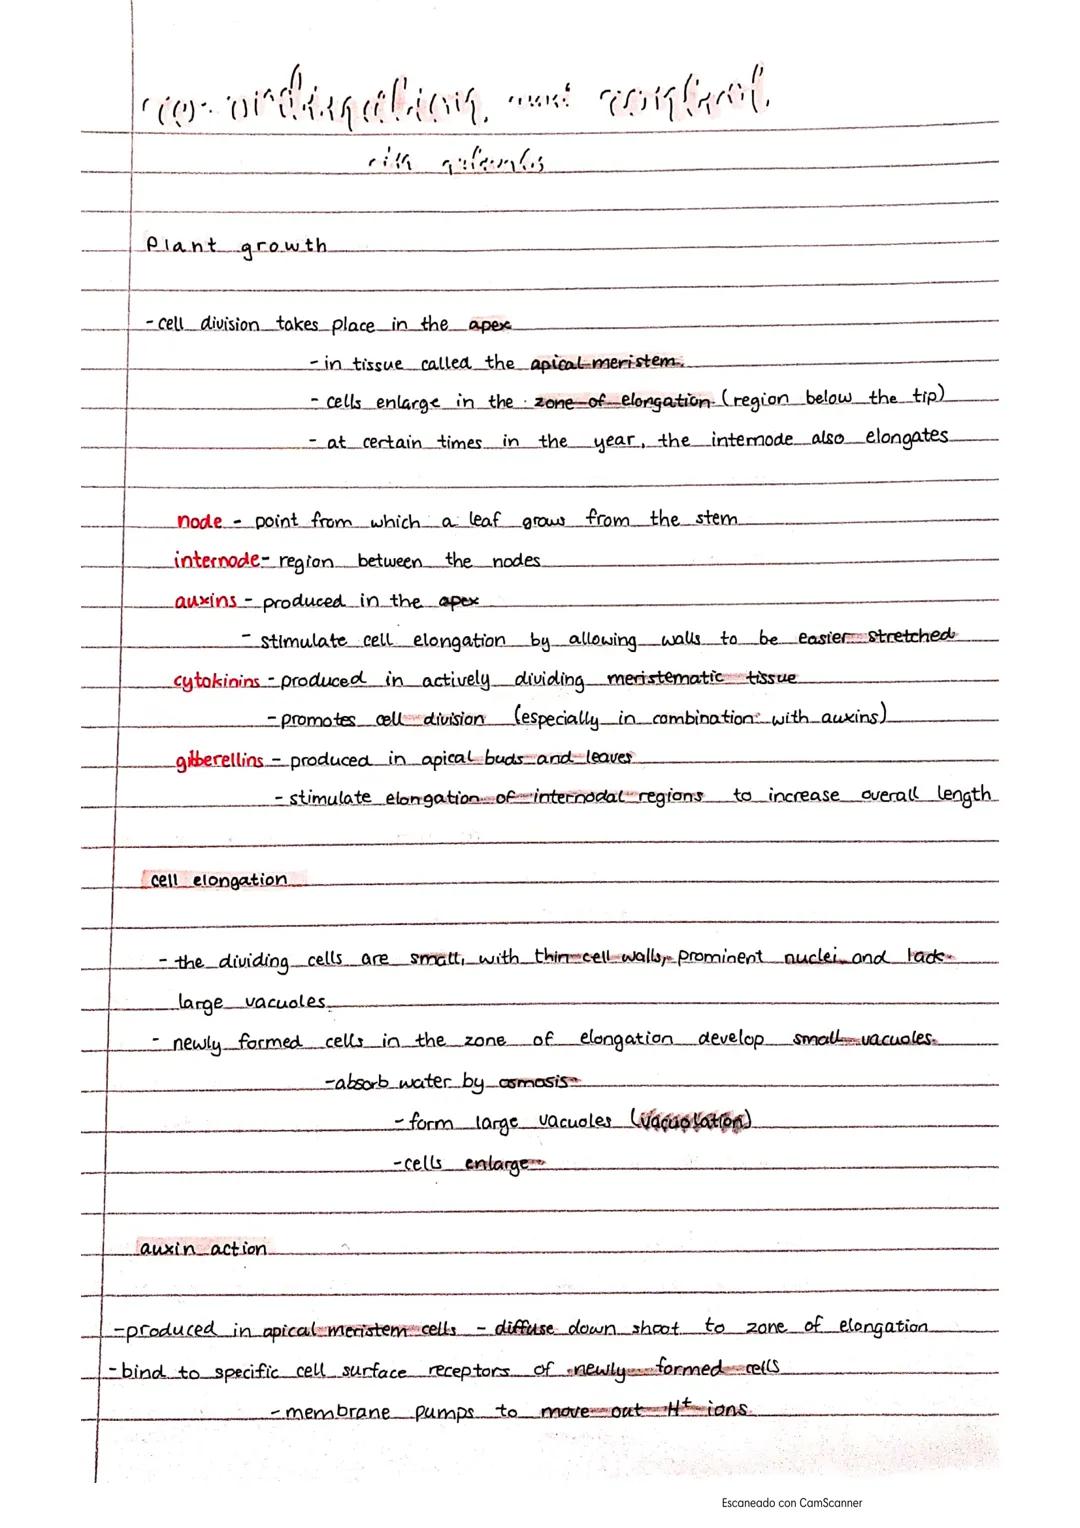 Plant growth
- cell division takes place in the apex
- in tissue called the apical meristem.
- cells enlarge in the zone of elongation (region below the tip)
- at certain times in the year, the internode also elongates
node - point from which a leaf grows from the stem
internode - region between the nodes
auxins - produced in the apex
- stimulate cell elongation by allowing walls to be easier stretched
cytokinins - produced in actively dividing meristematic tissue
- promotes cell division (especially in combination with auxins)
gibberellins - produced in apical buds and leaves
- stimulate elongation of internodal regions to increase overall length
cell elongation
- the dividing cells are small, with thin cell walls, prominent nuclei and lack
large vacuoles
- newly formed cells in the zone of elongation develop small vacuoles.
- absorb water by osmosis
- form large vacuoles (vacuolation)
- cells enlarge
auxin action
- produced in apical meristem cells - diffuse down shoot to zone of elongation
- bind to specific cell surface receptors of newly formed cells
- membrane pumps to move out H+ ions
Escaneado con CamScanner